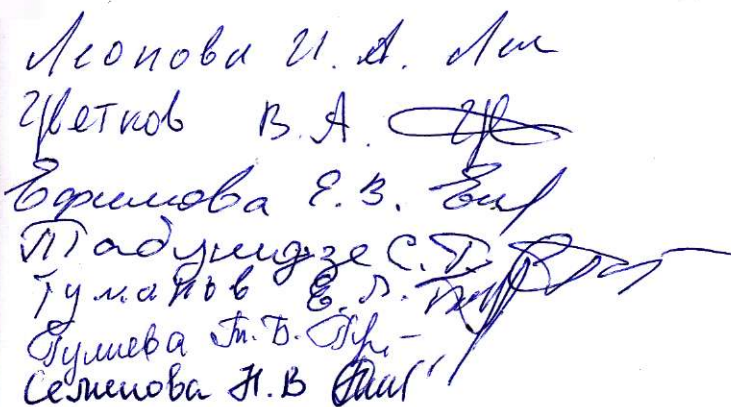 Леонова И. А.
Цветков В. А.
Ефимова Е. В.
Табунидзе С. Т.
Туманов Е. Л.
Гулиева Т. Б.
Семенова Н. В